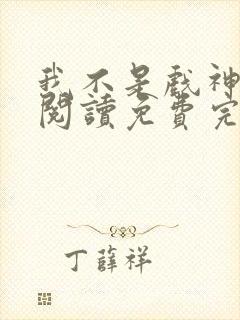 我不是戲神
閱讀免費完
丁薛祥